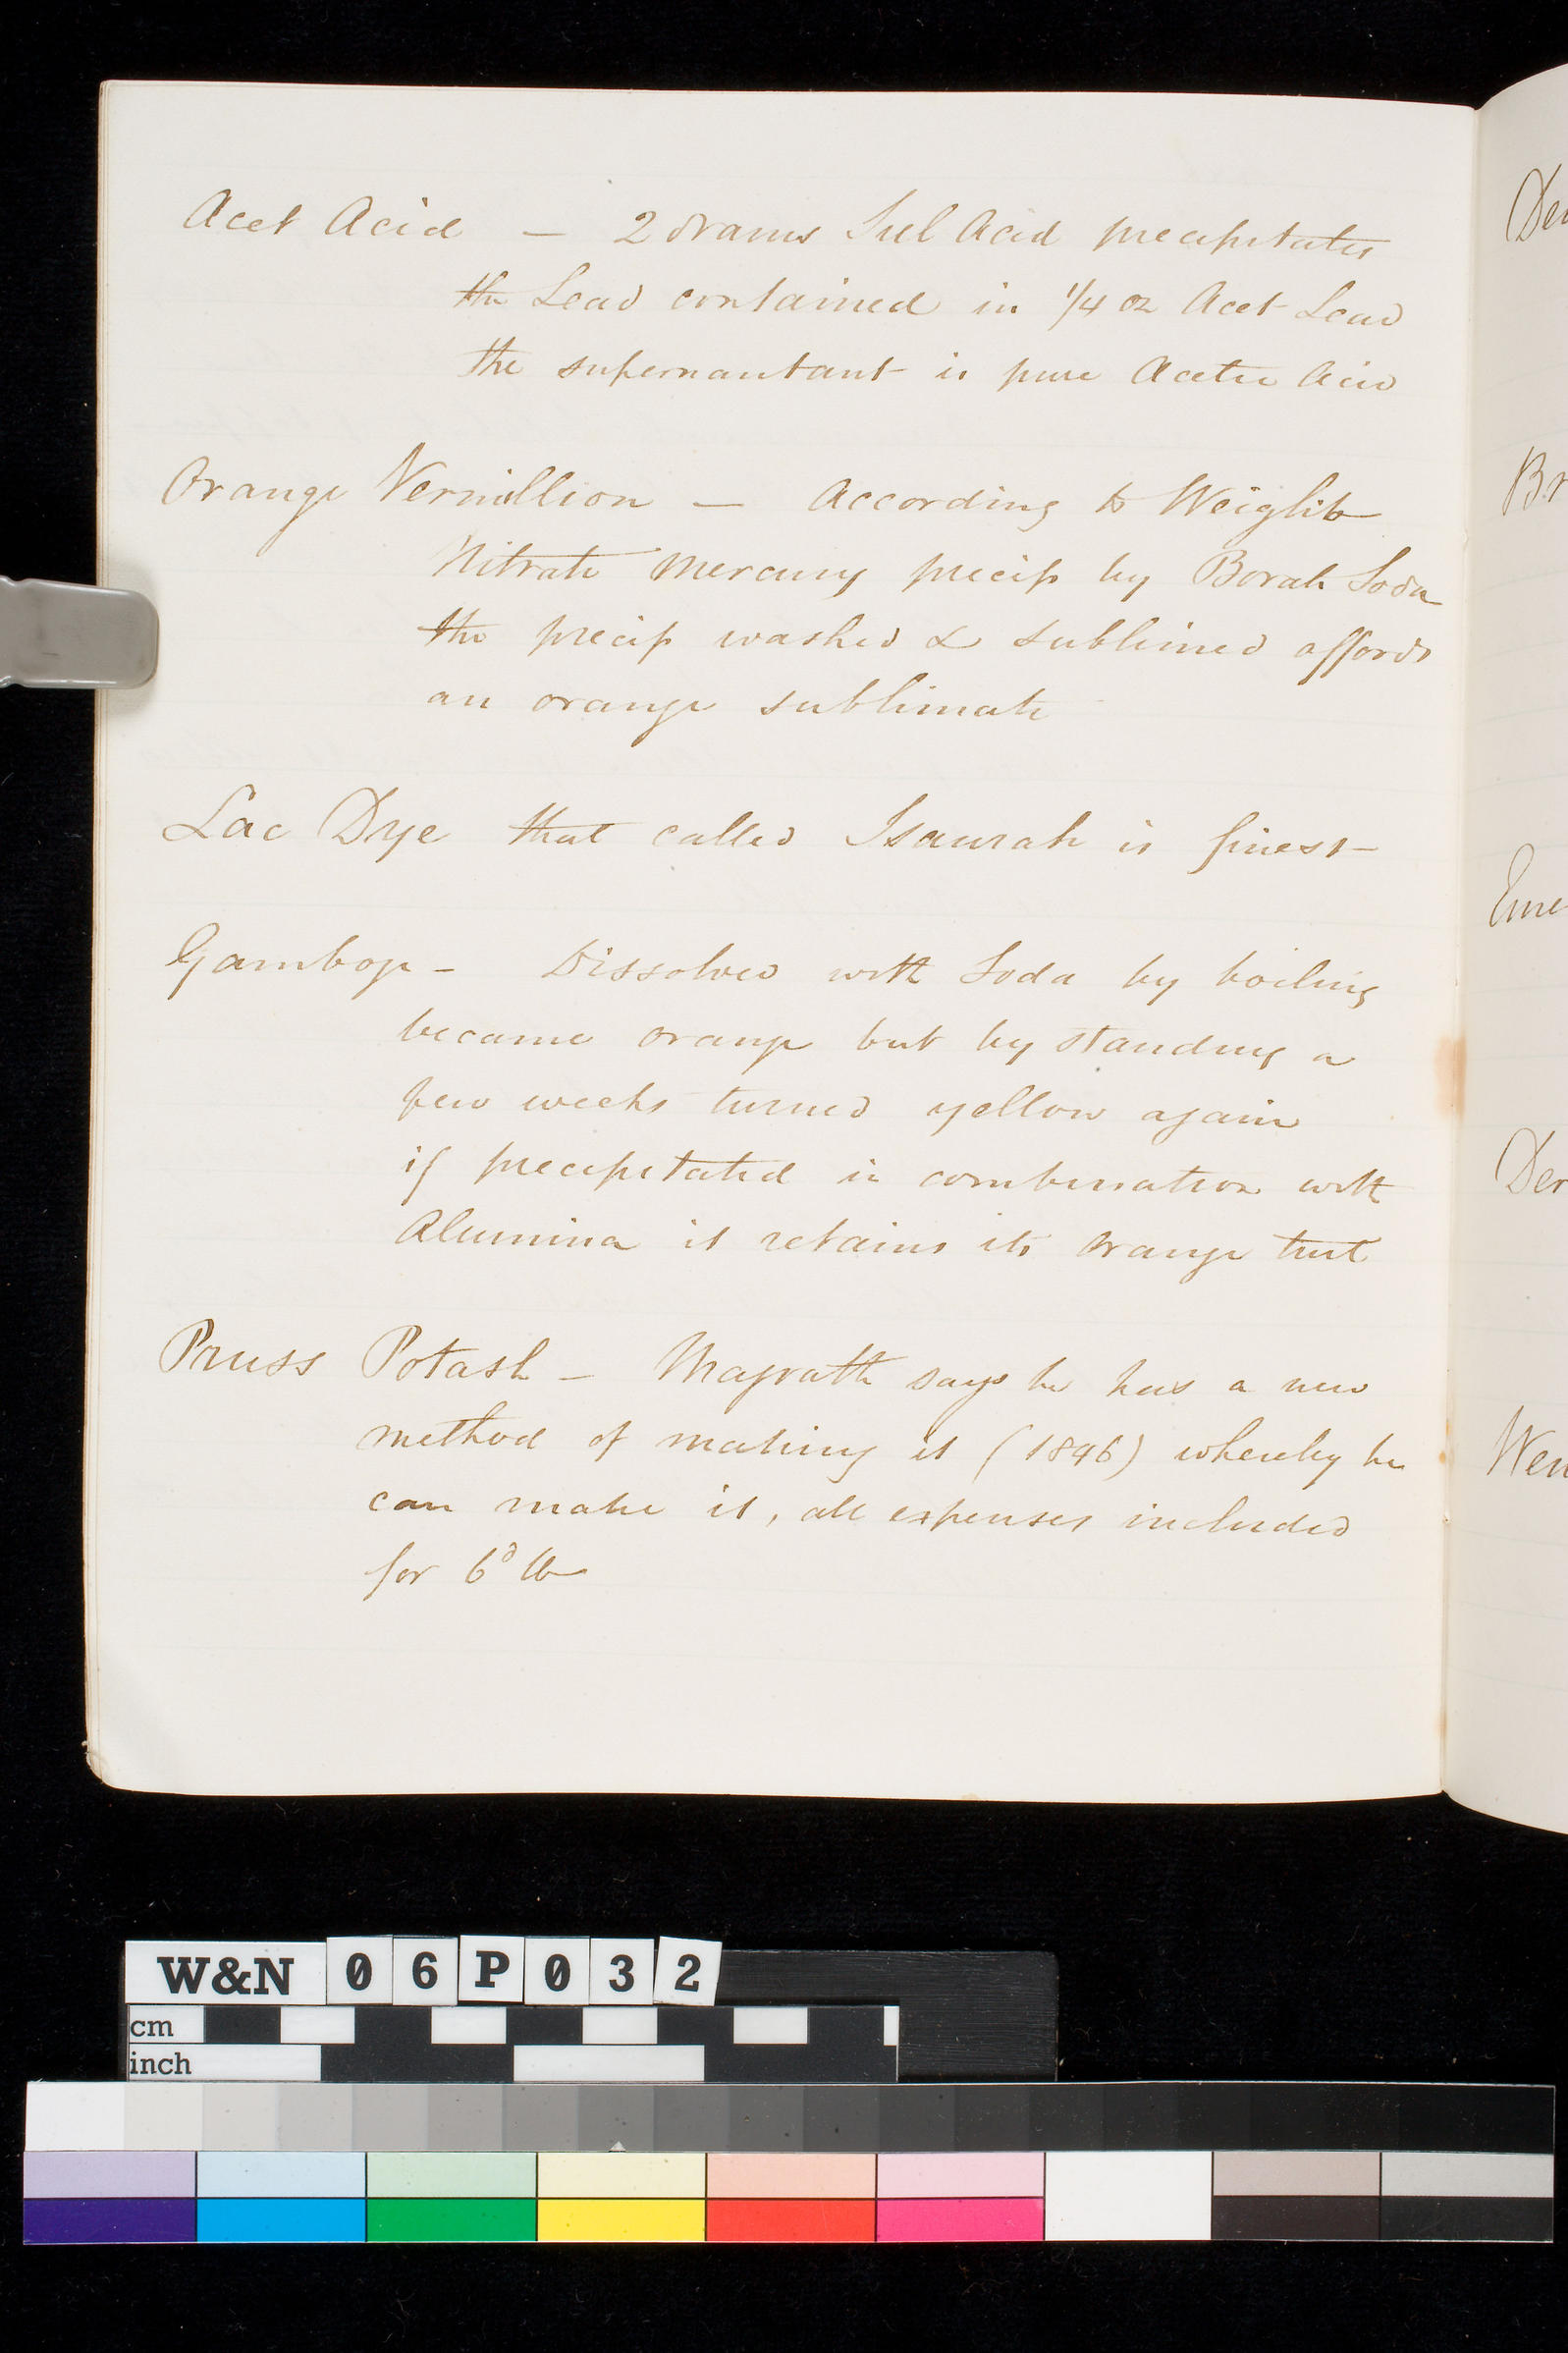 Acet Acid — 2 drams Sul Acid precipitates
the Lead contained in 1/4 oz Acet Lead
the supernantant is pure Acetic Acid
Orange Vermillion — According to Weiglib
Nitrate Mercury precip by Borate Soda
the precip washed & sublimed affords
an orange sublimate
Lac Dye that called is finest
Gamboge - Dissolved with Soda by boiling
became orange but by standing a
few weeks turned yellow again
if precipitated in combination with
Alumina it retains its orange tint
Pruss Potash — Magrath says he has a new
method of making it (1846) whereby he
can make it, all expenses included
for 6d lb
Br
Eme
Der
W&N 06P032
cm
inch